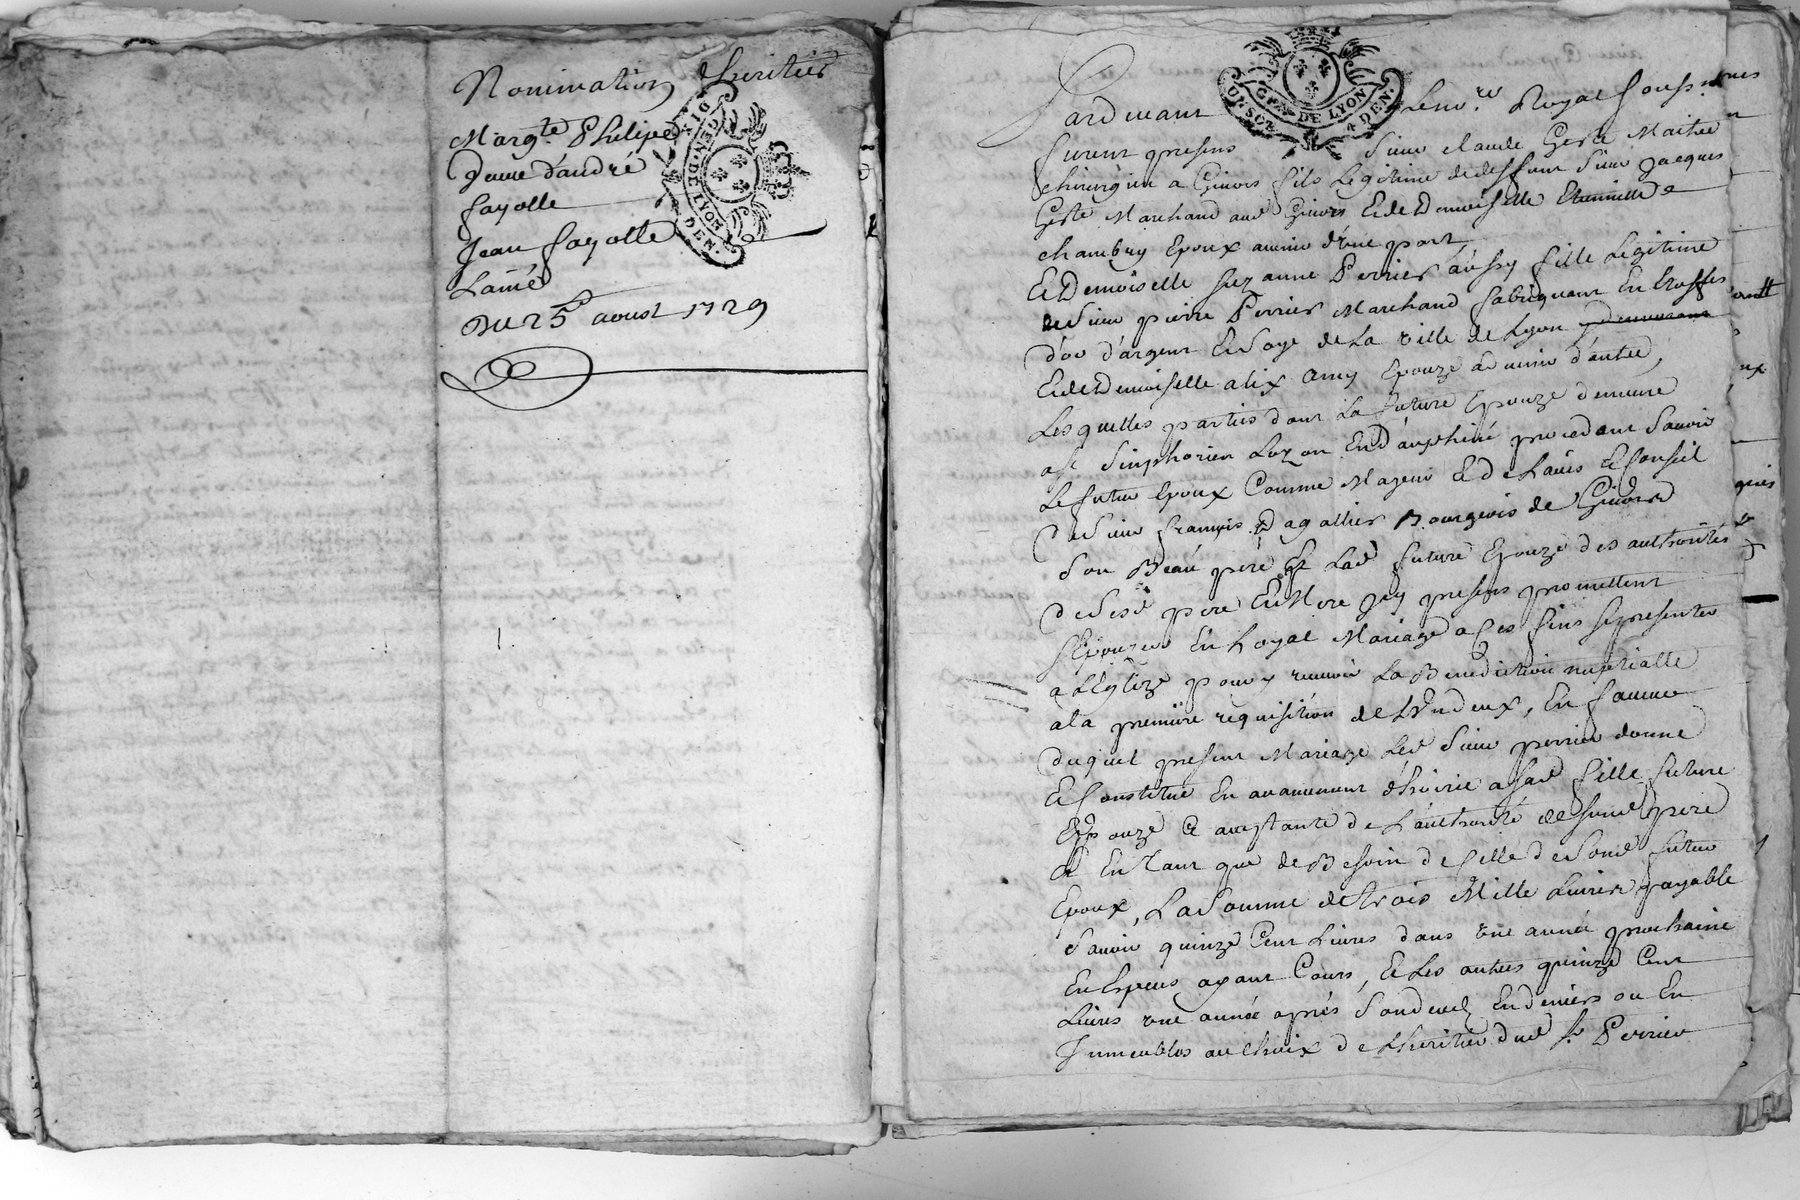 Nomination d'heritier
Marg.te Philipe
Veuve d'andré
fayolle
Jean fayolle
L'ainé
Du 25 aoust 1729
DIX
GEN. DE LYON
DEN.
Pardevant Le no.re Royal souss.né
furent presens Sieur claude Geste Maitre
chirurgien a Givors fils Legitime de deffunt Sieur Jacques
Geste Marchand aud Givors Et de Demoiselle
chambry Epoux avenir d'une part,
Et Demoiselle suzanne Perrier aussy fille Legitime
de Sieur pierre Perrier Marchand fabriquant En Etoffes
d'or d'argent Et Soye de La ville de Lyon
Et de Demoiselle alix amy Epouze a venir d'autre,
Lesquelles parties dont La future Epouze demeure
a St Sinphorien Dozon En Dauphiné procedant Savoir
Le futur Epoux Comme Majeur Et de L'avis Et Conseil
De Sieur françois Dagallier Bourgeois de Givors
Son Beau pere Et Lad future Epouze des authorités
de Sesd pere Et Mere Icy presens promettent
S'Epouzer En Loyal Mariage a Ces fins se presenter
a L'Eglize pour y recevoir La Benediction nuptialle
a La premiere réquisition de L'un deux, En faveur
duquel present Mariage Led Sieur perrier donne
Et Constitue En avancement d'hoirie a sad fille future
Epouze acceptante de L'authorité de sond pere
Et En Tant que de Besoin de Celle de Sond futur
Epoux, La Somme de trois Mille Livres payable
Savoir quinze Cent Livres dans une année prochaine
En Especes ayant Cours, Et Les autres quinze Cent
Livres une année après Son deced En deniers ou En
Immeubles au Choix de L'heritier dud Sr Perrier
GEN. DE LYON
4 DEN.